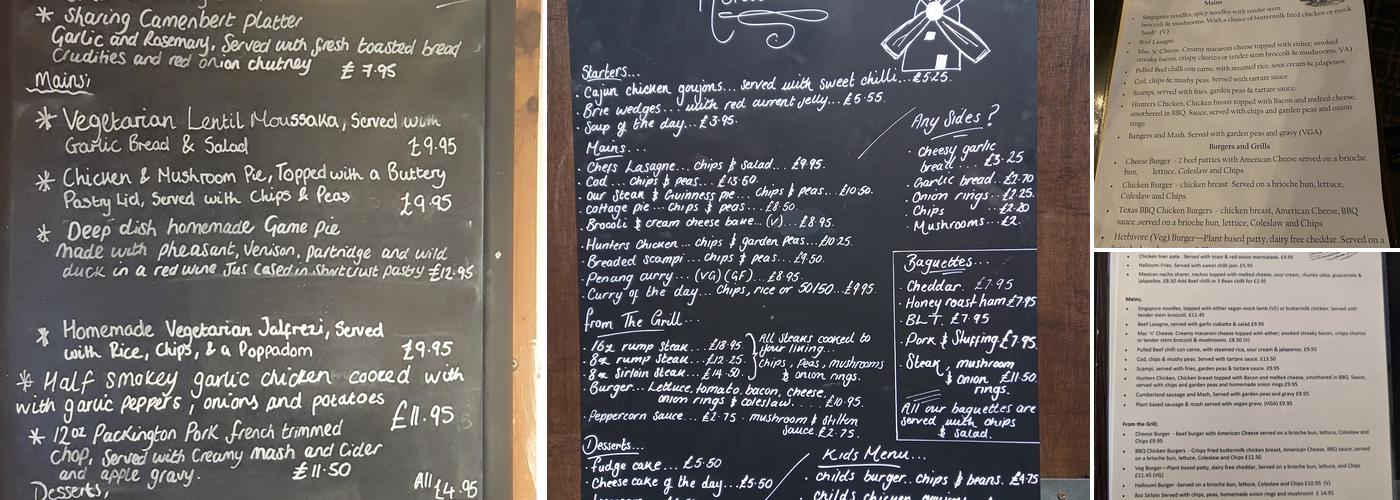 * Sharing Camembert platter
Garlic and Rosemary, Served with fresh toasted bread
Crudities and red onion chutney £7.95
Mains;
* Vegetarian Lentil Moussaka, Served with
Garlic Bread & Salad £9.95
* Chicken & Mushroom Pie, Topped with a Buttery
Pastry Lid, Served with Chips & Peas £9.95
* Deep dish homemade Game Pie
made with pheasant, Venison, partridge and wild
duck in a red wine Jus cased in shortcrust pastry £12.95
* Homemade Vegetarian Jalfrezi, Served
with Rice, Chips, & a Poppadom £9.95
* Half smokey garlic chicken cooked with
with garlic peppers, onions and potatoes £11.95
* 12oz Packington Pork french trimmed
chop, Served with Creamy mash and Cider
and apple gravy. £11.50
Desserts, All £4.95
Starters...
. Cajun chicken goujons... served with sweet chilli... £5.25.
. Brie wedges... with red current jelly... £5.55.
. Soup of the day... £3.95.
Mains...
. Chefs Lasagne... chips & salad... £9.95.
. Cod... chips & peas... £13.50.
. Our Steak & Guinness pie... chips & peas... £10.50.
. Cottage pie... chips & peas... £8.50.
. Brocoli & cream cheese bake... (v)... £8.95.
. Hunters Chicken... chips & garden peas... £10.25.
. Breaded scampi... chips & peas... £9.50.
. Penang curry... (VG)(GF)... £8.95.
. Curry of the day... Chips, rice or 50/50... £9.95.
from The Grill...
. 16oz rump steak... £18.95.
. 8oz rump steak... £12.25.
. 8oz Sirloin steak... £14.50.
All steaks cooked to
your lining...
Chips, Peas, mushrooms
& onion rings.
. Burger... Lettuce, tomato, bacon, cheese,
onion rings & coleslaw... £10.95.
. Peppercorn Sauce... £2.75 . mushroom & Stilton
Sauce £2.75.
Desserts...
. Fudge cake... £5.50
. Cheese cake of the day... £5.50
Any Sides?
. Cheesy garlic
bread... £3.25
. Garlic bread.. £2.70
. Onion rings.. £2.25.
. Chips £2.20
. Mushrooms.. £2.
Baguettes...
. Cheddar. £7.95
. Honey roast ham £7.95
. B.L.T. £7.95
. Pork & Stuffing £7.95.
. Steak, mushroom
& onion. £11.50
rings.
All our baguettes are
served with chips
& salad.
Kids Menu...
. childs burger.. chips & beans. £4.75
. childs chicken
Mains
• Singapore noodles, spicy noodles with tender stem
broccoli & mushrooms. With a choice of buttermilk fried chicken or mock
'lamb'. (V)
• Beef Lasagne
• Mac 'n' Cheese. Creamy macaroni cheese topped with either; smoked
streaky bacon, crispy chorizo or tender stem broccoli & mushrooms. VA)
• Pulled Beef chilli con carne, with steamed rice, sour cream & jalapenos.
• Cod, chips & mushy peas. Served with tartare sauce
• Scampi, served with fries, garden peas & tartare sauce.
• Hunters Chicken, Chicken breast topped with Bacon and melted cheese,
smothered in BBQ Sauce, served with chips and garden peas and onion
rings.
• Bangers and Mash, Served with garden peas and gravy (VGA)
Burgers and Grills
• Cheese Burger - 2 beef patties with American Cheese served on a brioche
bun, lettuce, Coleslaw and Chips.
• Chicken Burger - chicken breast Served on a brioche bun, lettuce,
Coleslaw and Chips.
• Texas BBQ Chicken Burgers - chicken breast, American Cheese, BBQ
sauce ,served on a brioche bun, lettuce, Coleslaw and Chips
• Herbivore (Veg) Burger—Plant based patty, dairy free cheddar. Served on a
• Chicken liver pate . Served with toast & red onion marmalade. £4.95
• Halloumi Fries. Served with sweet chilli jam. £5.95
• Mexican nacho sharer, nachos topped with melted cheese, sour cream, chunky salsa, guacamole &
jalapeños. £8.50 Add Beef chilli or 3 Bean chilli for £2.95
Mains;
• Singapore noodles, topped with either vegan mock lamb (VE) or buttermilk chicken. Served with
tender stem broccoli. £11.45
• Beef Lasagne, served with garlic ciabatta & salad £9.95
• Mac 'n' Cheese. Creamy macaroni cheese topped with either; smoked streaky bacon, crispy chorizo
or tender stem broccoli & mushrooms. £8.50 (V)
• Pulled Beef chilli con carne, with steamed rice, sour cream & jalapeños. £9.95
• Cod, chips & mushy peas. Served with tartare sauce. £13.50
• Scampi, served with fries, garden peas & tartare sauce. £9.95
• Hunters Chicken, Chicken breast topped with Bacon and melted cheese, smothered in BBQ Sauce,
served with chips and garden peas and homemade onion rings.£9.95
• Cumberland sausage and Mash, Served with garden peas and gravy £9.95
• Plant based sausage & mash served with vegan gravy. (VGA) £9.95
From the Grill;
• Cheese Burger - Beef burger with American Cheese served on a brioche bun, lettuce, Coleslaw and
Chips £9.95
• BBQ Chicken Burgers - Crispy fried buttermilk chicken breast, American Cheese, BBQ sauce ,served
on a brioche bun, lettuce, Coleslaw and Chips £12.50
• Veg Burger—Plant based patty, dairy free cheddar, Served on a brioche bun, lettuce, and Chips.
£11.45 (VG)
• Halloumi Burger -Served on a brioche bun, lettuce, Coleslaw and Chips £10.95 (V)
• 8oz Sirloin Served with chips, peas, homemade onion rings and mushrooms. £ 14.95